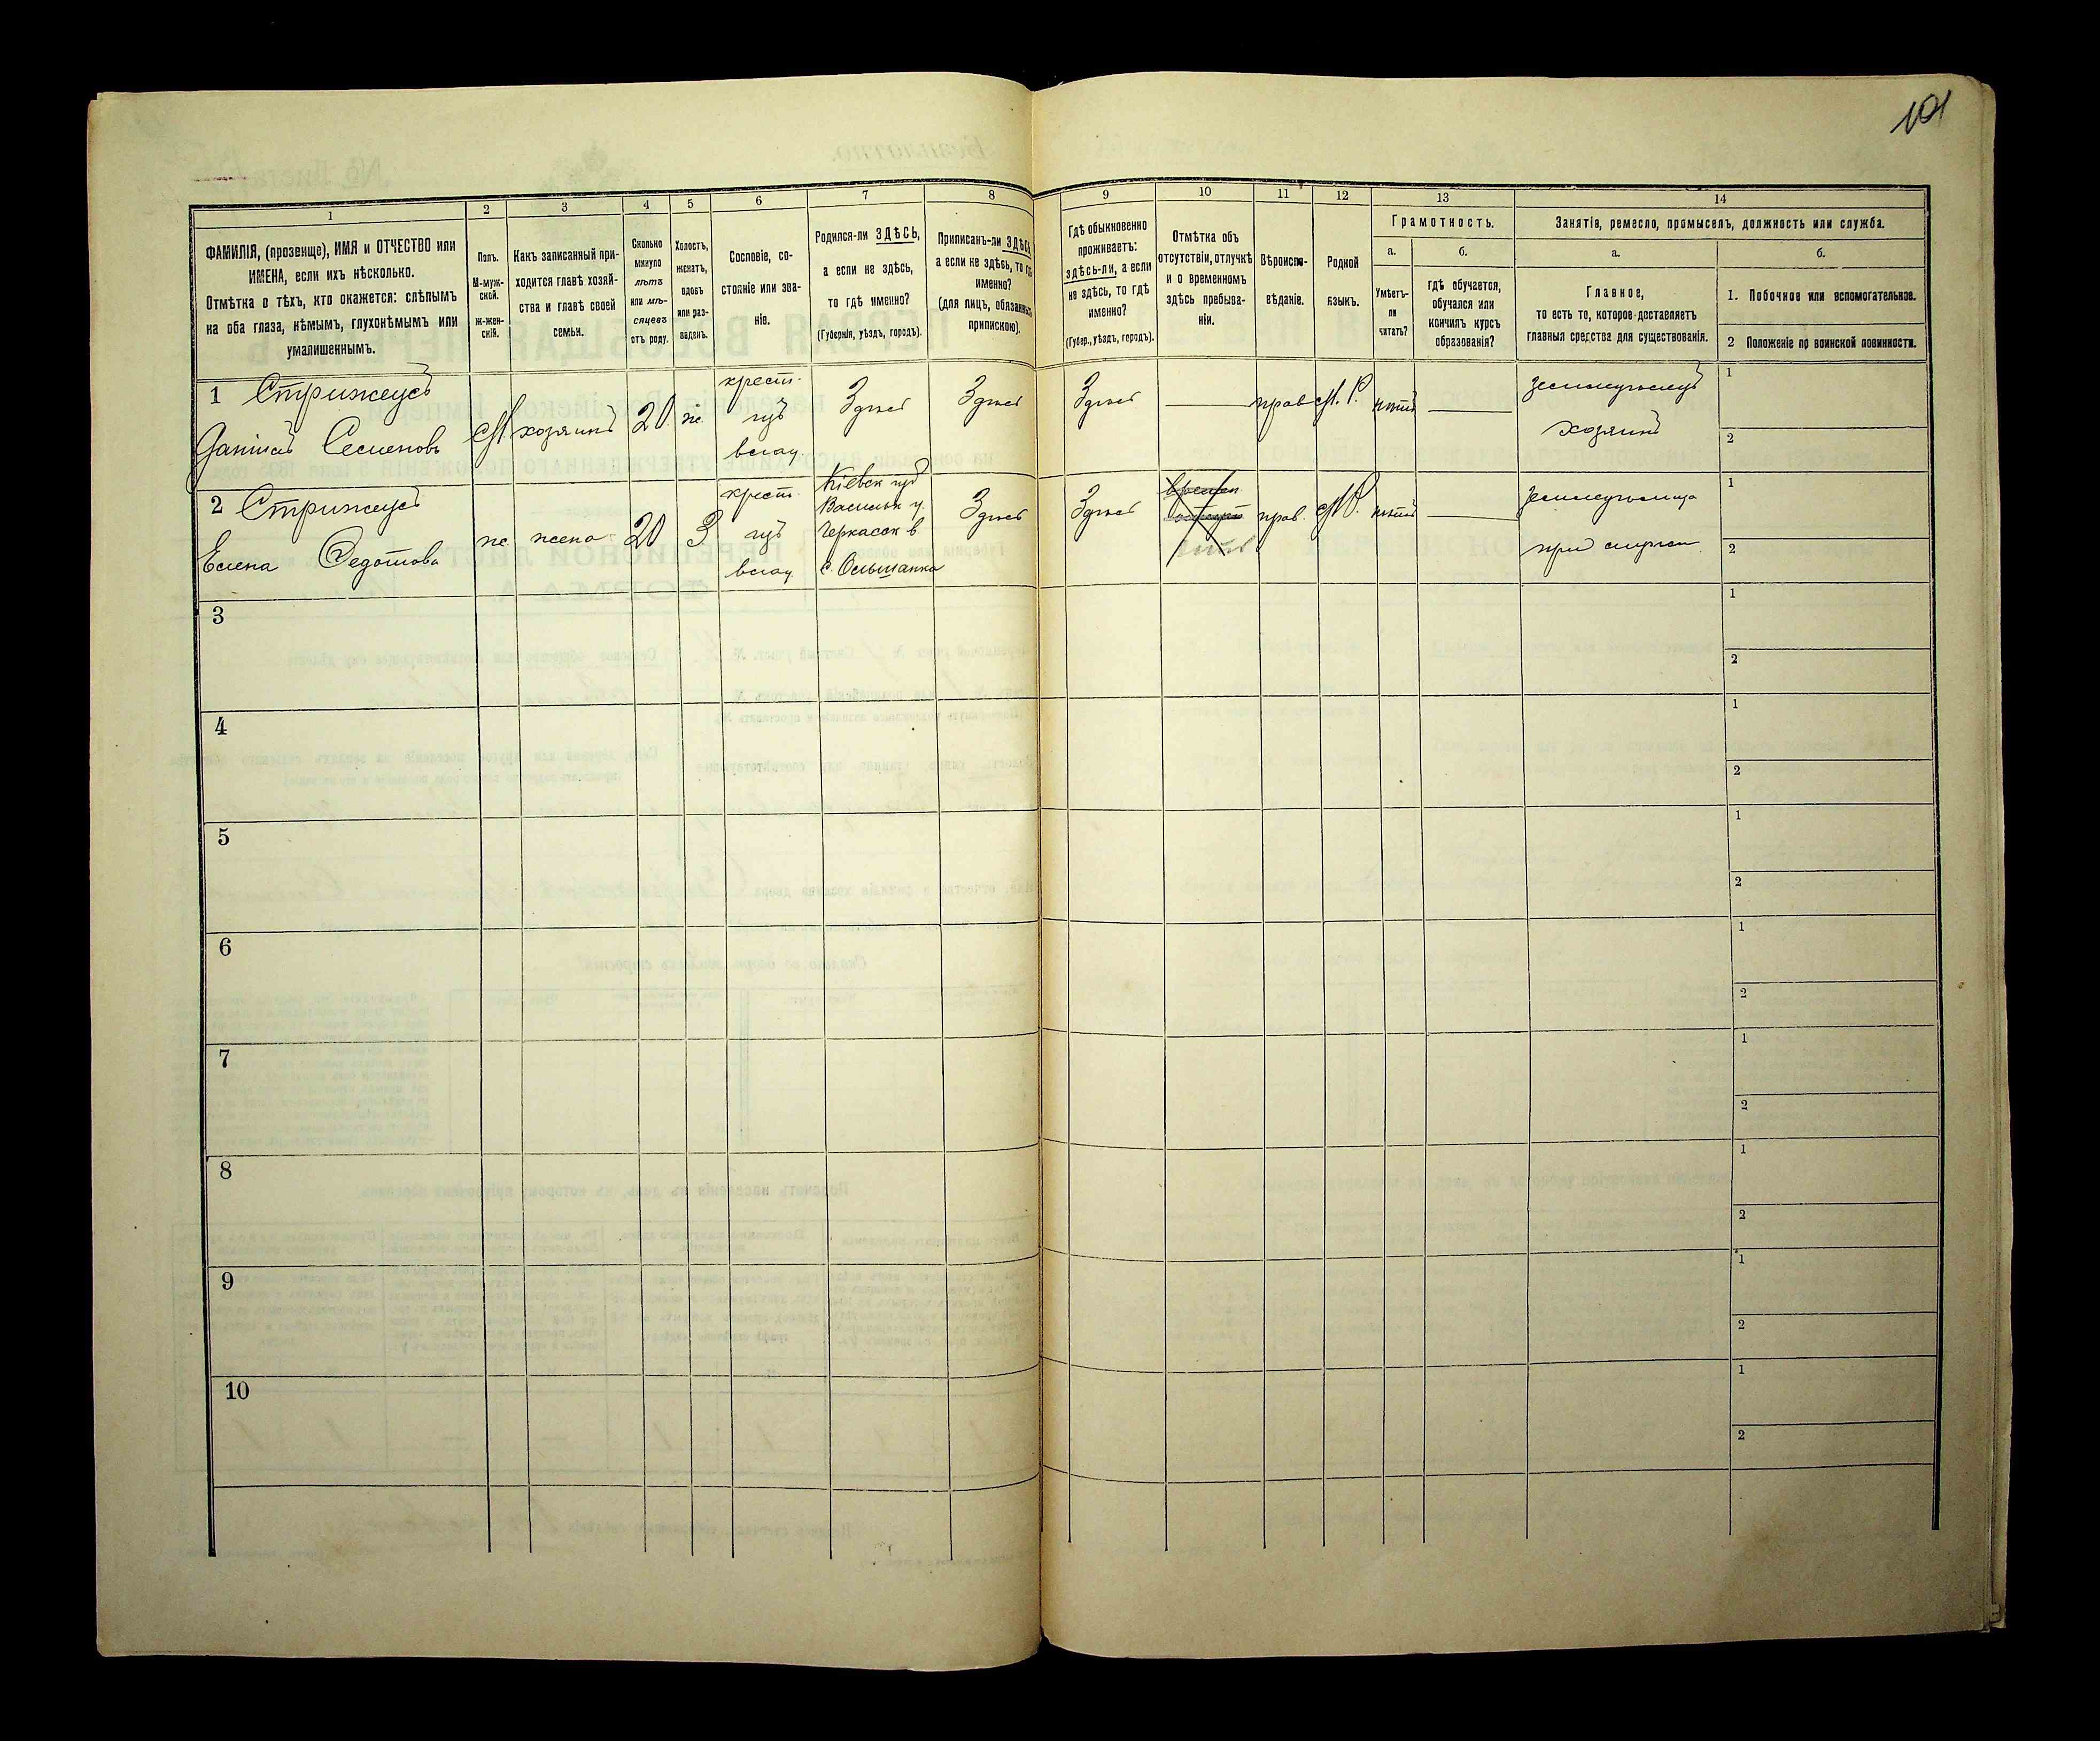 101
1 2 3 4 5 6 7 8 9 10 11 12 13 14
ФАМИЛІЯ, (прозвище), ИМЯ и ОТЧЕСТВО или
ИМЕНА, если ихъ нѣсколько.
Отмѣтка о тѣхъ, кто окажется: слѣпымъ
на оба глаза, нѣмымъ, глухонѣмымъ или
умалишеннымъ.
Полъ.
М-муж-
ской.
ж-жен-
скій.
Какъ записанный при-
ходится главѣ хозяй-
ства и главѣ своей
семьи.
Сколько
минуло
лѣтъ
или мѣ-
сяцевъ
отъ роду.
Холостъ,
женатъ,
вдовъ
или раз-
веденъ.
Сословіе, со-
стояніе или зва-
ніе.
Родился-ли ЗДѢСЬ,
а если не здѣсь,
то гдѣ именно?
(Губернія, уѣздъ, городъ).
Приписанъ-ли ЗДѢСЬ,
а если не здѣсь, то гдѣ
именно?
(для лицъ, обязанныхъ
припискою).
Гдѣ обыкновенно
проживаетъ:
здѣсь-ли, а если
не здѣсь, то гдѣ
именно?
(Губер., уѣздъ, городъ).
Отмѣтка объ
отсутствіи, отлучкѣ
и о временномъ
здѣсь пребыва-
ніи.
Вѣроиспо-
вѣданіе.
Родной
языкъ.
Грамотность.
а.
Умѣетъ-
ли
читать?
б.
гдѣ обучается,
обучался или
кончилъ курсъ
образованія?
Занятія, ремесло, промыселъ, должность или служба.
а.
Главное,
то есть то, которое доставляетъ
главныя средства для существованія.
б.
1. Побочное или вспомогательное.
2 Положеніе по воинской повинности.
1 Стрижеусъ
Даніилъ Семеновъ
М.
хозяинъ
20
ж.
крест.
изъ
влад.
Здѣсь
Здѣсь
Здѣсь
прав
М. Р.
нѣтъ
земледѣлецъ
хозяинъ
1
2
2 Стрижеусъ
Елена Федотова
ж
жена
20
З
крест.
изъ
влад.
Кіевск губ
Васильк у.
Черкасск в.
с. Ольшанка
Здѣсь
Здѣсь
прав.
М Р.
нѣтъ
земледѣлица
при мужѣ
1
2
3
1
2
4
1
2
5
1
2
6
1
2
7
1
2
8
1
2
9
1
2
10
1
2